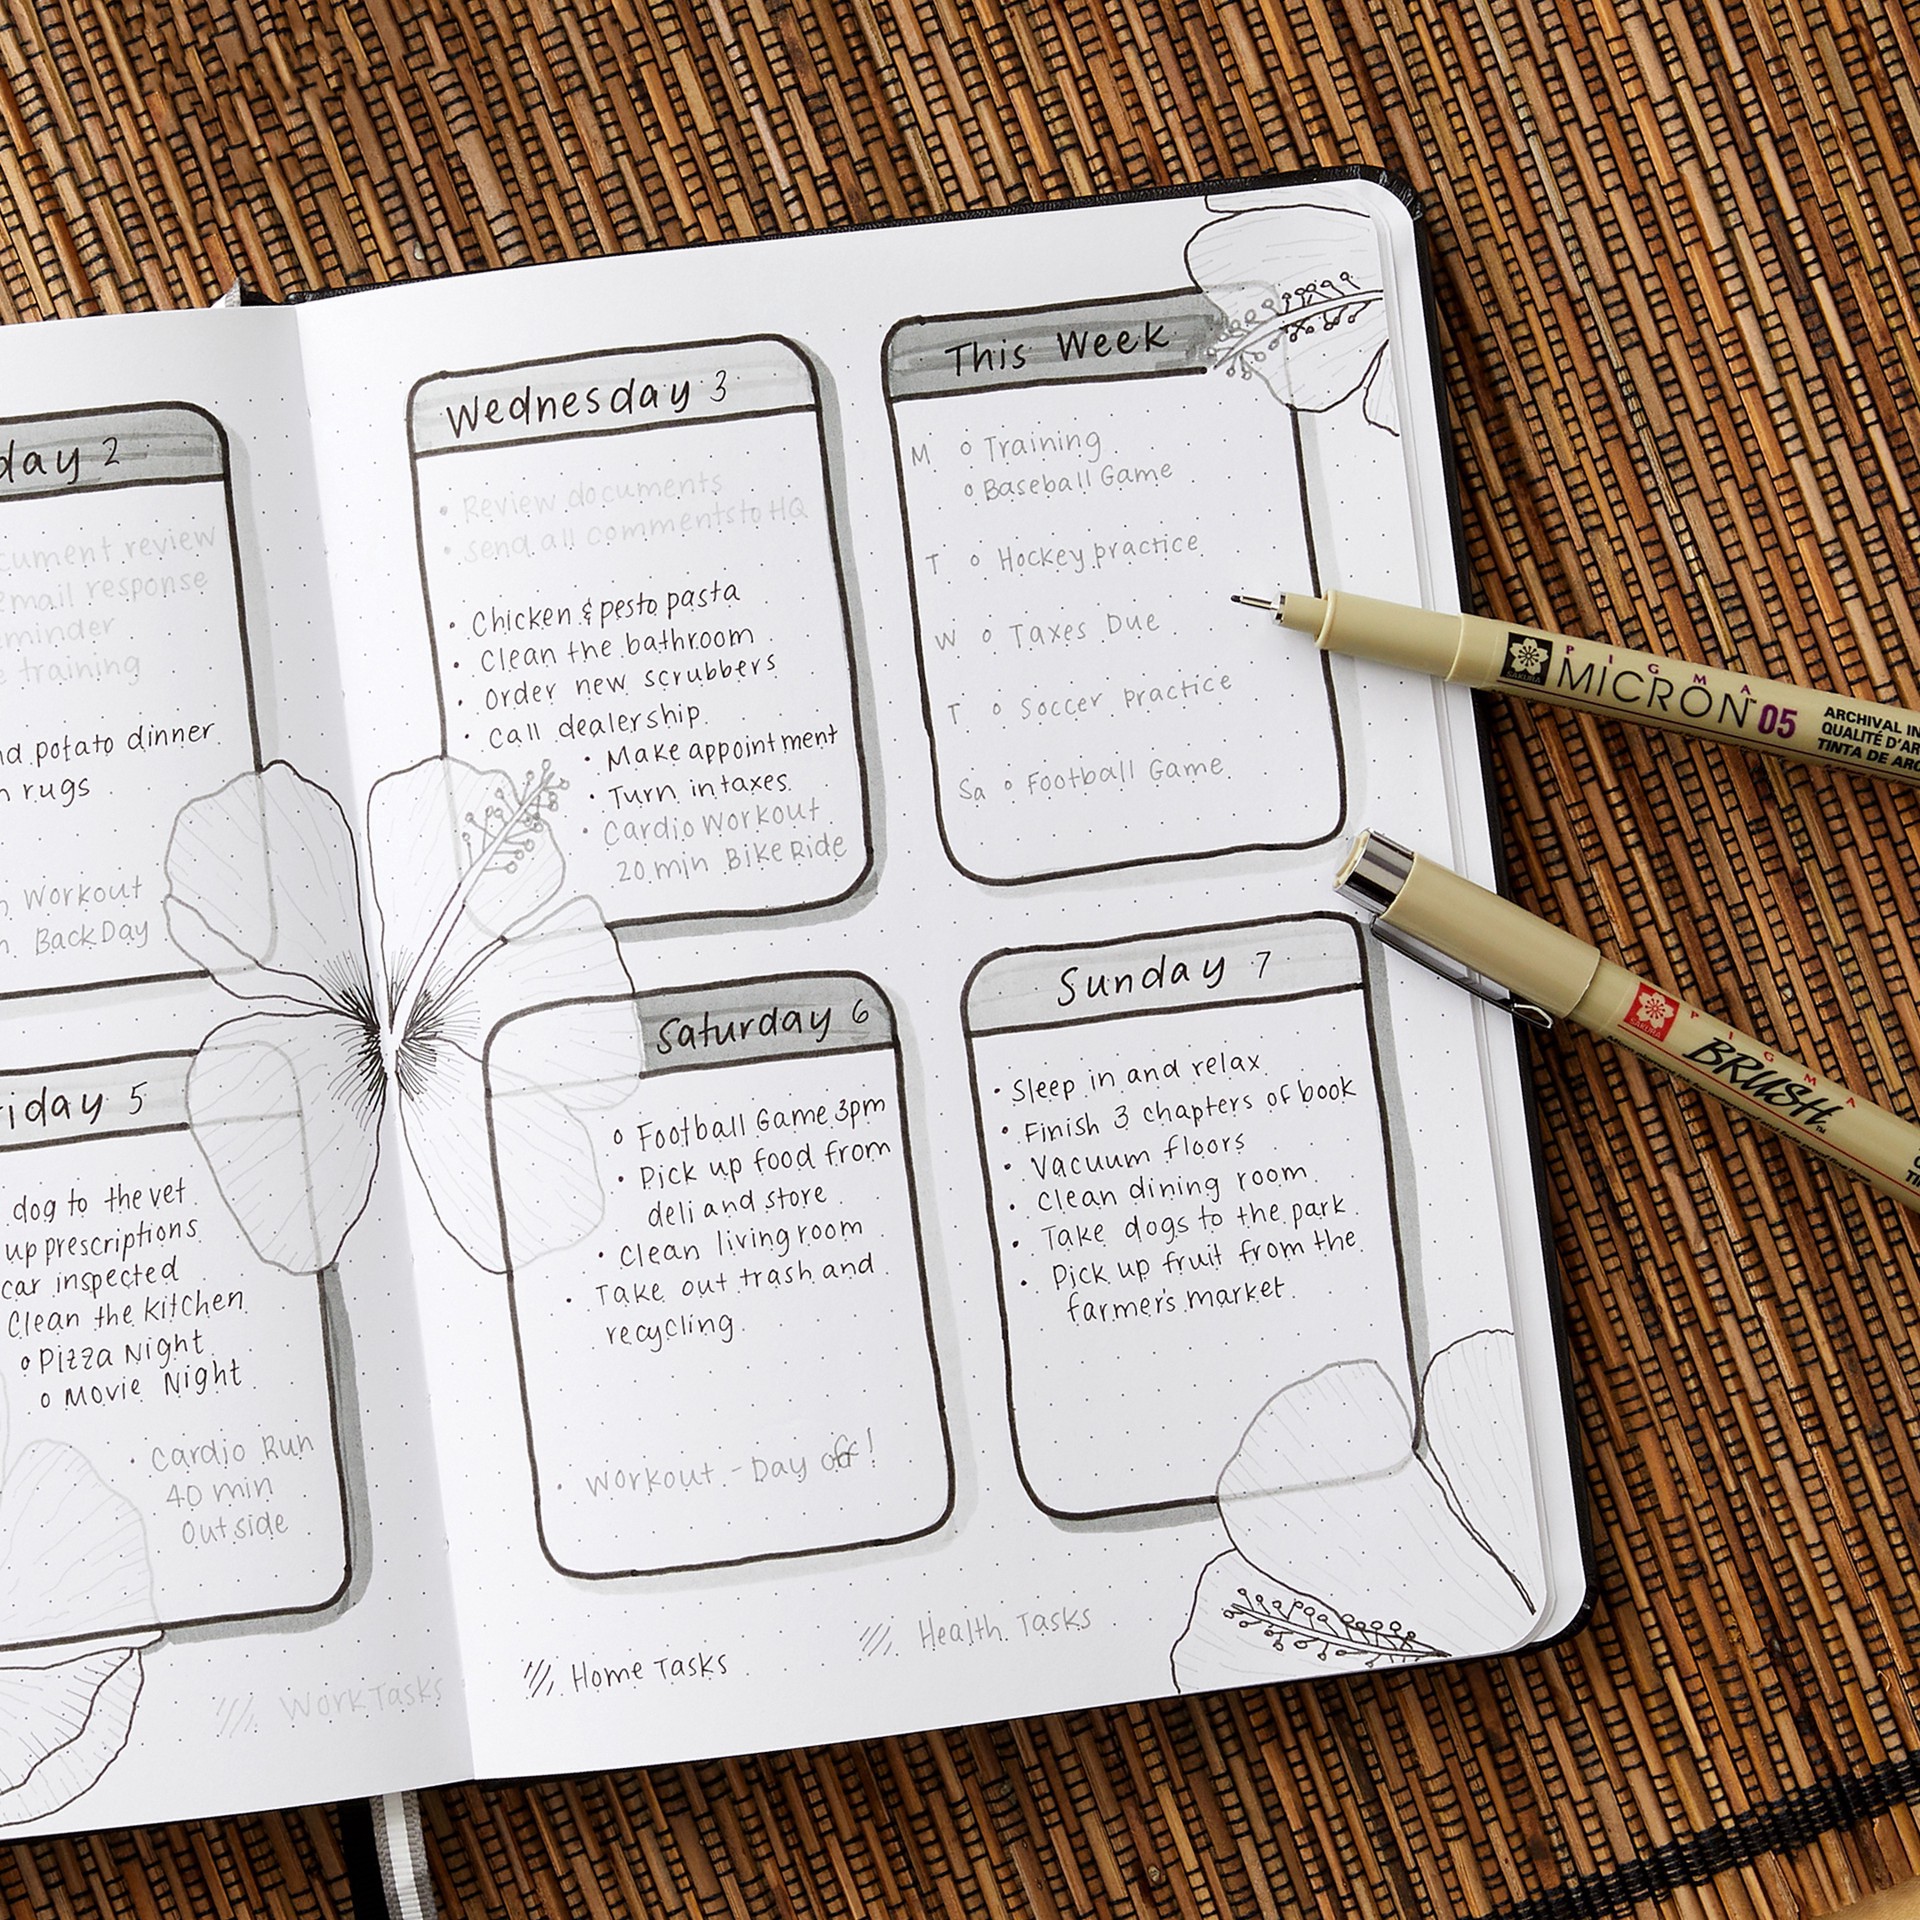 day 2
cument review
email response
minder
e training
nd potato dinner
n rugs
Workout
Back Day
riday 5
dog to the vet
up prescriptions
car inspected
Clean the kitchen
Pizza Night
Movie Night
Cardio Run
40 min
Outside
Work Tasks
Wednesday 3
Review documents
send all comments to HQ
Chicken & pesto pasta
Clean the bathroom
Order new scrubbers
Call dealership
Make appointment
Turn in taxes
Cardio Workout
20 min Bike Ride
This Week
M Training
Baseball Game
T Hockey practice
W Taxes Due
T Soccer practice
Sa Football Game
Saturday 6
Football Game 3pm
Pick up food from
deli and store
Clean living room
Take out trash and
recycling
Workout - Day off!
Sunday 7
Sleep in and relax
Finish 3 chapters of book
Vacuum floors
Clean dining room
Take dogs to the park
Pick up fruit from the
farmer's market
Home Tasks
Health Tasks
SAKURA
PIGMA
MICRON™ 05
ARCHIVAL IN
QUALITÉ D'AR
TINTA DE ARC
SAKURA
PIGMA
BRUSH™